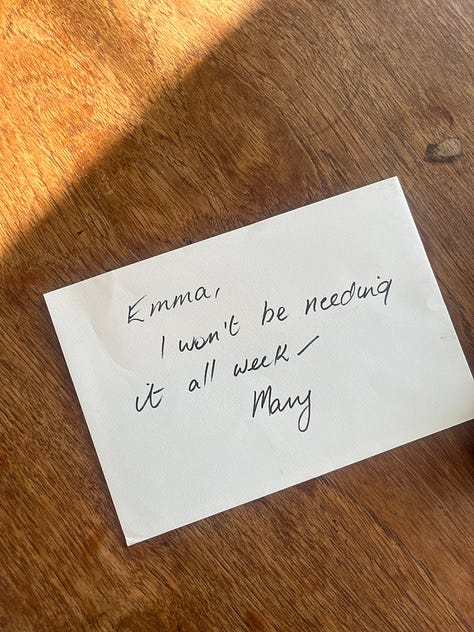 Emma,
I won't be needing
it all week –
Mary